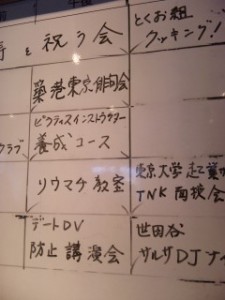 を祝う会
とくお組
クッキング!
築港東京俳句会
ピラティスインストラクター
養成コース
クラブ
リウマチ教室
東京大学
TNK 面接会
デートDV
防止講演会
世田谷
サルサDJナ